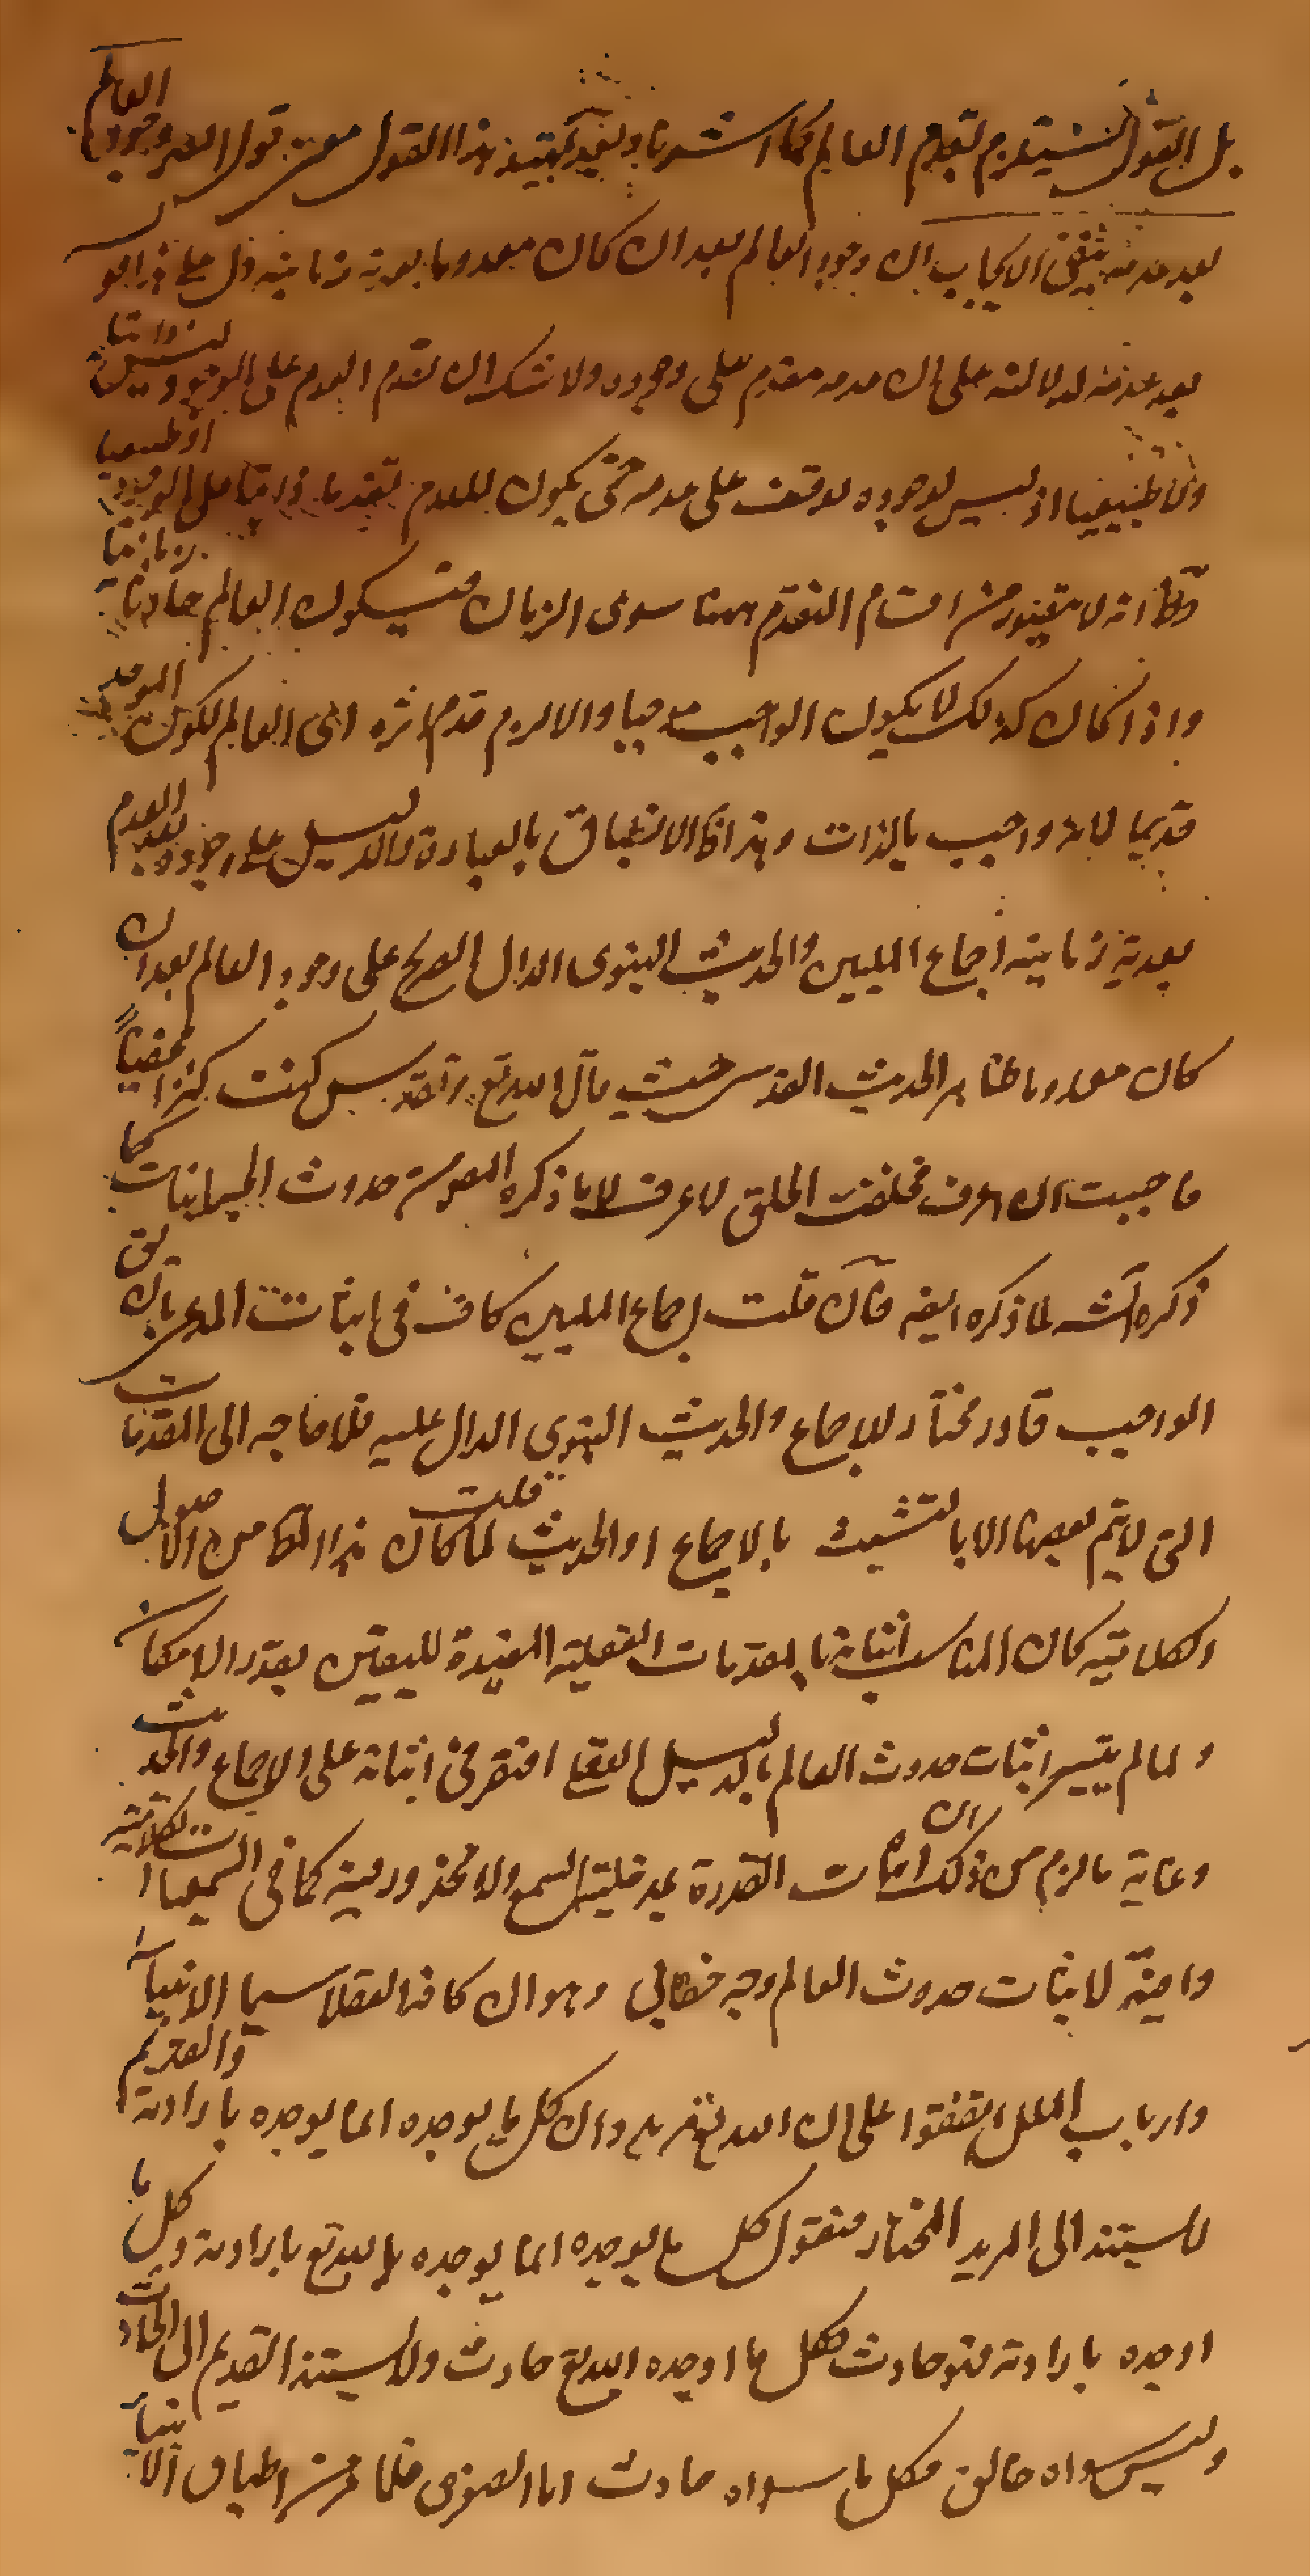 بل القول يستلزم لقدم العالم كما اشرنا وبعد تمهيد هذا القول معنى قول المص وجود العالم
بعد عدمه ينفى الايجاب ان وجود العالم بعد ان كان معدوما بعدية زمانية دل على ذا هو
بعد عدمه لدلالته على ان عدمه مقدم على وجوده ولا شك ان تقدم العدم على الوجود ليس ذاتيا
ولا طبيعيا اذ ليس لوجوده توقف على عدمه حتى يكون للعدم تقدما ذاتيا على الوجود او طبيعيا
انه لا يتصور من اقسام التقدم ههنا سوى الزمان فيكون العالم حادثا زمانيا
واذا كان كذلك لا يكون الواجب موجبا والا لزم قدم اثره اى العالم لكون الموجد
قديما لانه واجب بالذات وهذا الانطباق بالعبارة والدليل على وجوده بعد العدم
بعدية زمانية اجماع المليين والحديث النبوى الدال الصريح على وجود العالم بعد ان
كان معدوما ظاهر الحديث القدسى حيث قال الله تع وتقدس كنت كنزا مخفيا
فاحببت ان اعرف فخلقت الخلق لاعرف لا ما ذكره المص من حدوث الجسمانيات كما
ذكره الش لما ذكره ايضا فان قلت اجماع المليين كاف فى اثبات المدعى بان يق
الواجب قادر مختار للاجماع والحديث النبوى الدال عليه فلا حاجه الى المقدمات
التى لا يتم بعضها الا بالتشبث بالاجماع او الحديث قلت لما كان هذا المط من الاصول
الكلامية كان المناسب اثباتها بالمقدمات العقلية المفيدة لليقين بقدر الامكان
ولما لم يتيسر اثبات حدوث العالم بالدليل العقلى افتقر فى اثباته على الاجماع والحديث
وغاية ما لزم من ذلك ان اثبات القدرة بمدخلية السمع ولا محذور فيه كما فى السمعيات الكلامية
وايضا لاثبات حدوث العالم وجه خطابى وهو ان كافة العقلا سيما الانبياء
وارباب الملل اتفقوا على ان الله تع مريد وان كل ما يوجده انما يوجده بارادته والقديم
لا يستند الى المريد المختار فنقول كل ما يوجده انما يوجده الله تع بارادته وكل ما
اوجده بارادته فهو حادث فكل ما اوجده الله تع حادث ولا يستند القديم الى الحادث
وليس سواه خالق فكل ما سواه حادث اما الصغرى فلما مر من اطباق الانبياء